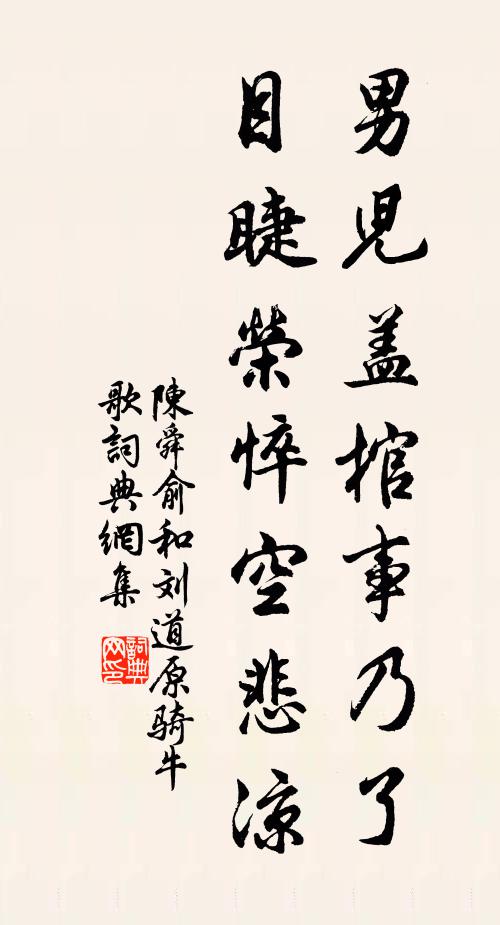 男児盖棺事乃了
目睫榮悴空悲凉
陳舜俞和刘道原骑牛
歌詞典網集
詞典网印